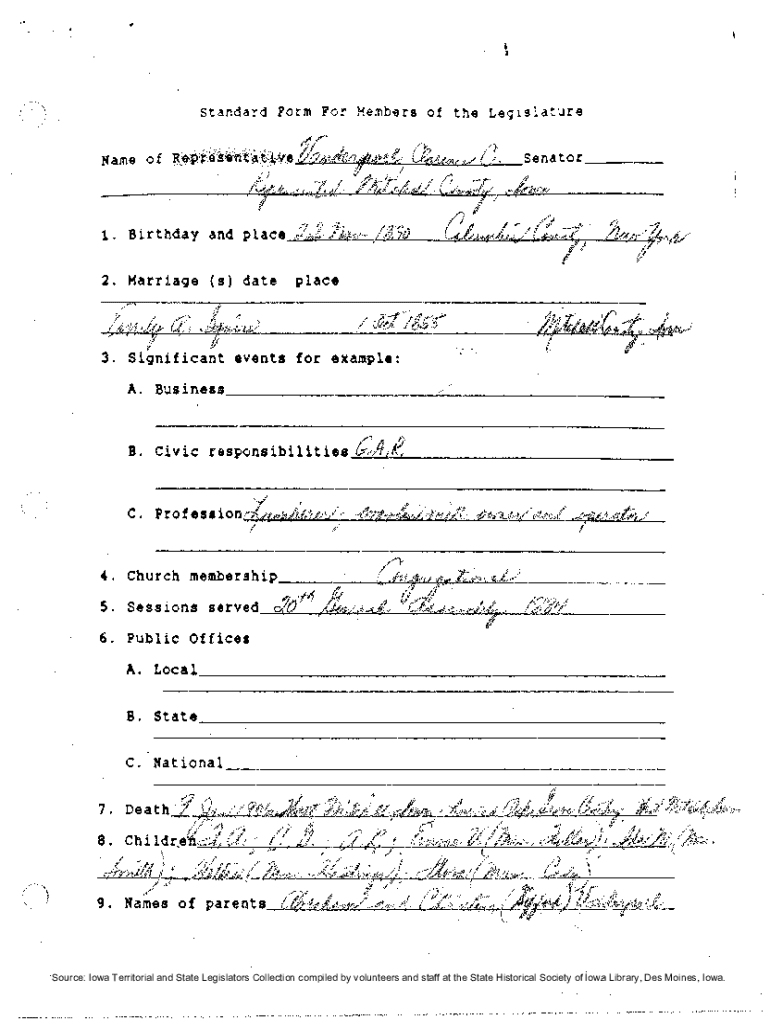 Standard Form For Members of the Legislature
Name of Representative Vanderpoel, Clarence A. Senator
Represented Mitchell County, Iowa
1. Birthday and place Nov 1830 Columbia County, New York
2. Marriage (s) date place
A. Squire 1 Oct 1855 Mitchell County, Iowa
3. Significant events for example:
A. Business
B. Civic responsibilities G.A.R.
C. Profession owner and operator
4. Church membership Congregational
5. Sessions served 20th General Assembly 1884
6. Public Offices
A. Local
B. State
C. National
7. Death Iowa
8. Children
Smith); Hattie (Mrs. Hastings); (Mrs. Cady)
9. Names of parents Abraham and Vanderpoel
Source: Iowa Territorial and State Legislators Collection compiled by volunteers and staff at the State Historical Society of Iowa Library, Des Moines, Iowa.